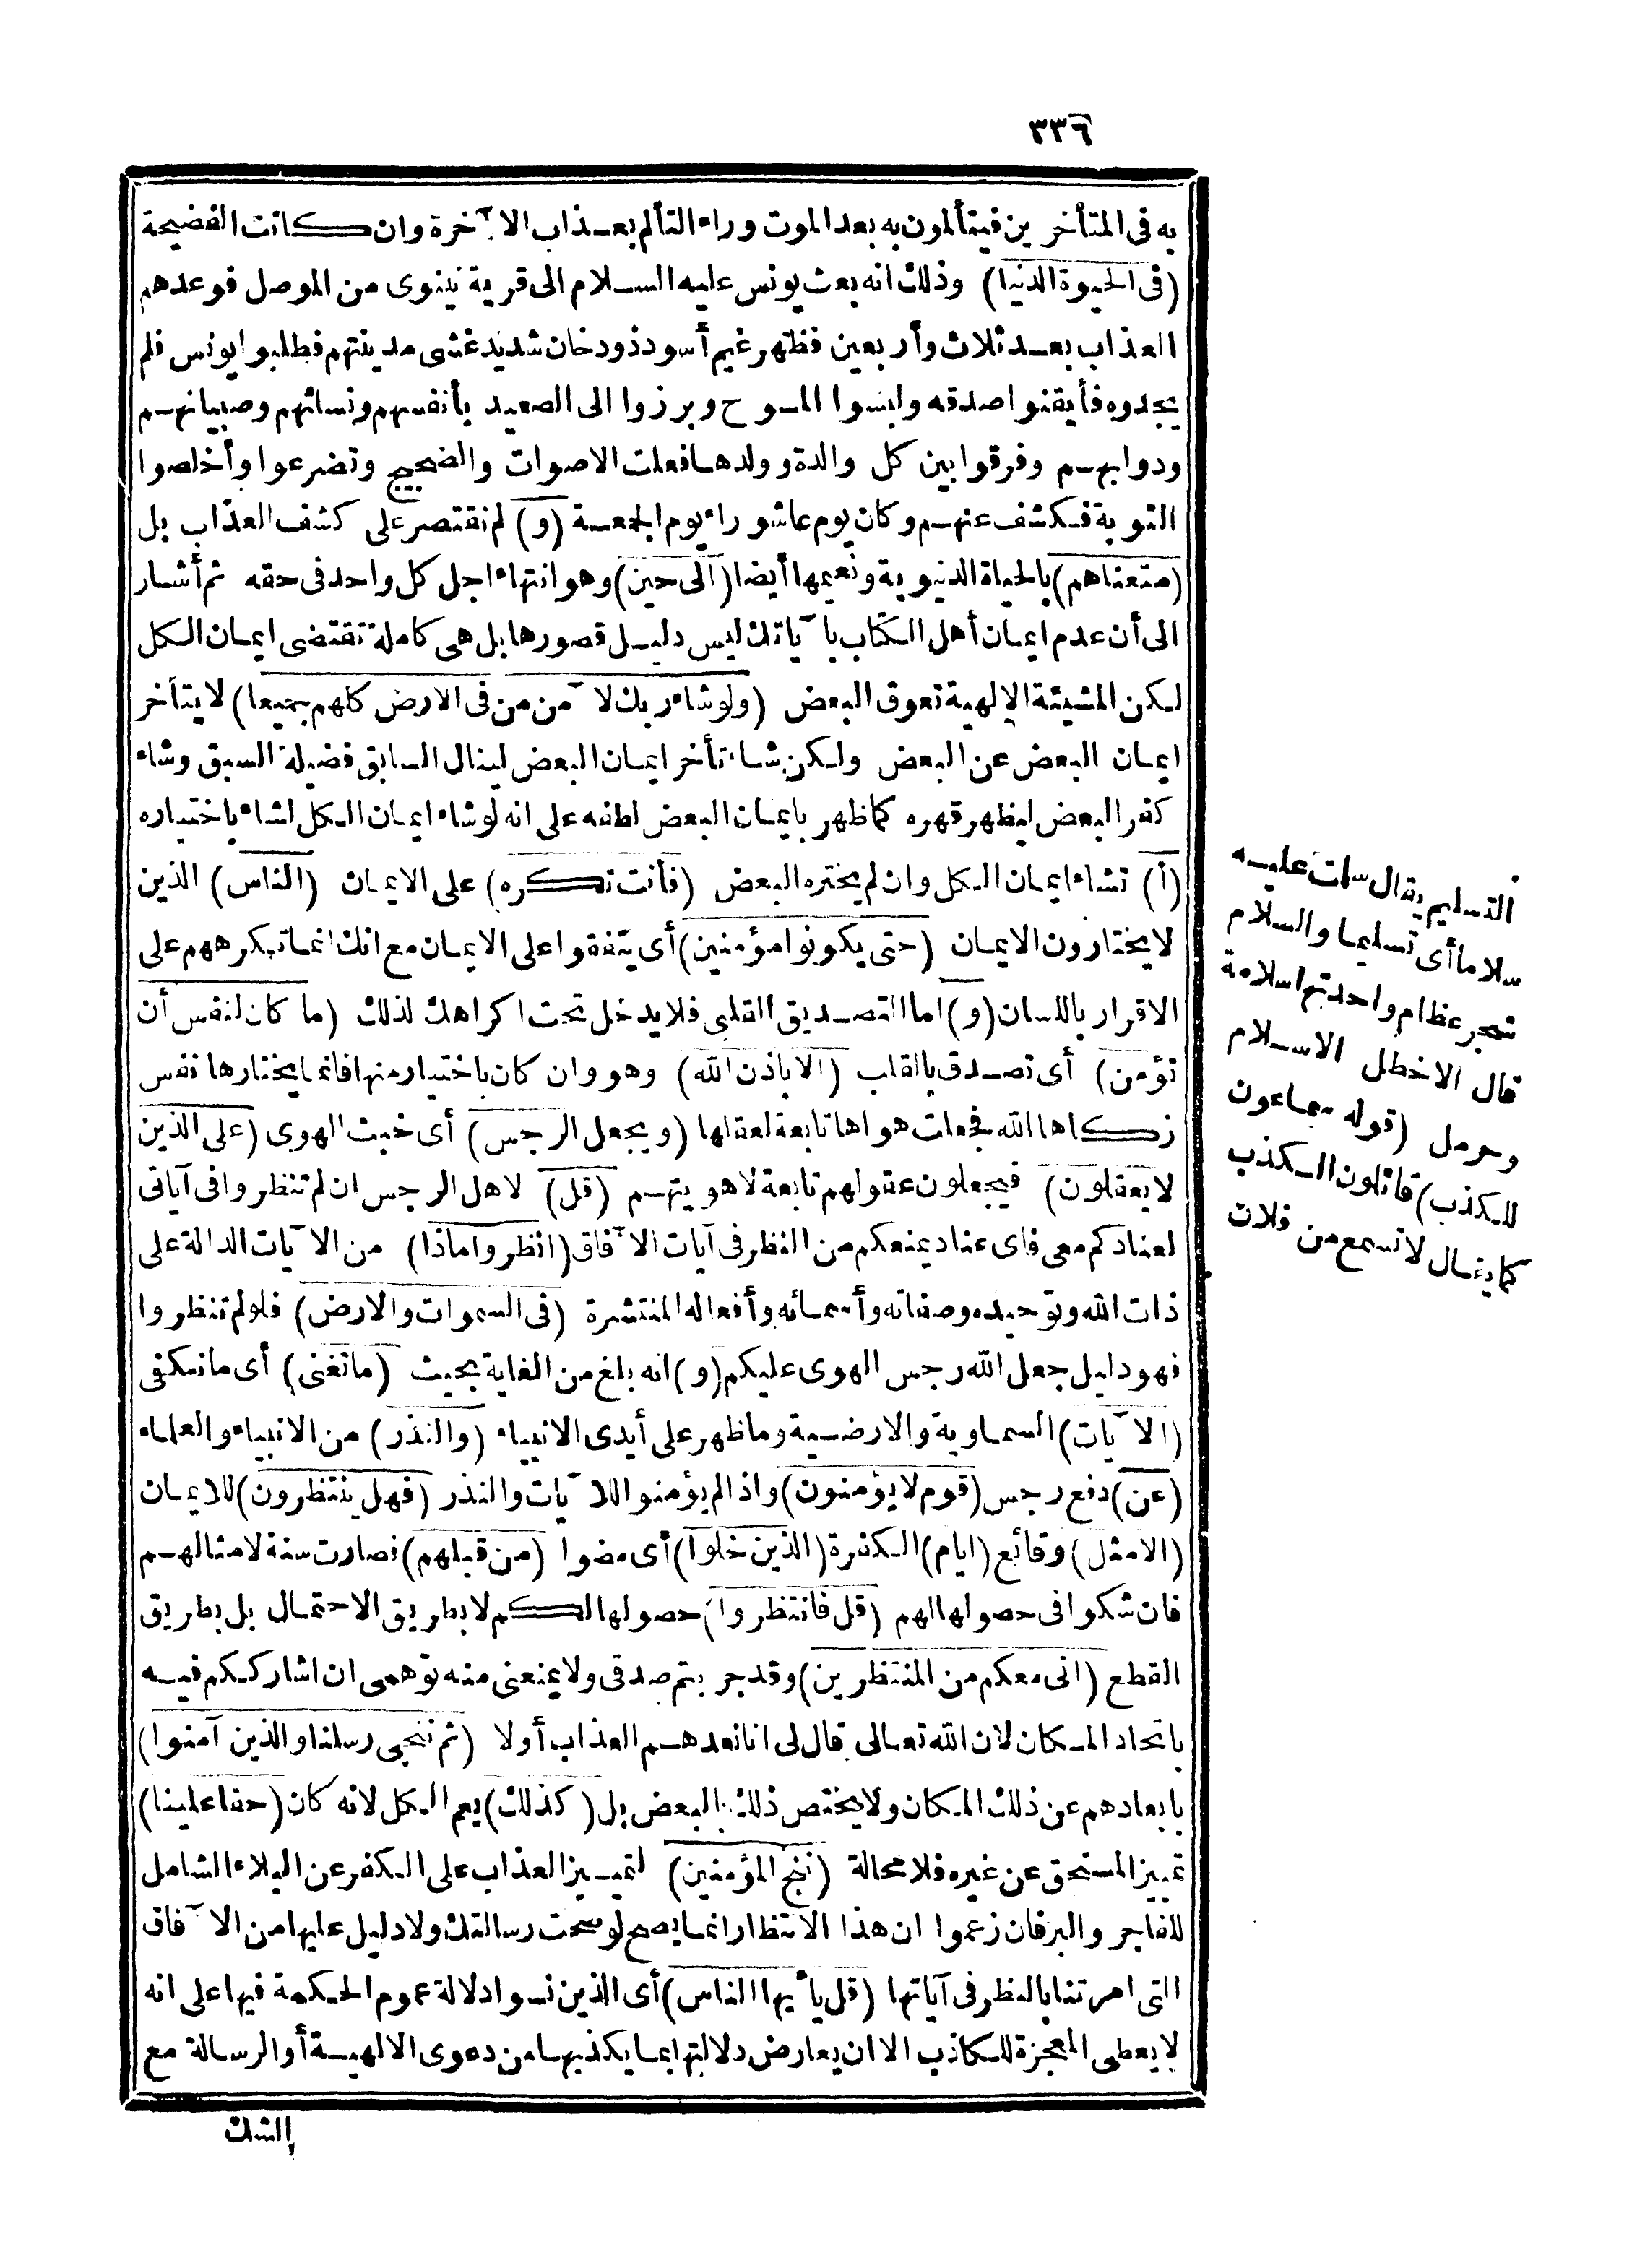 ٣٣٦
به فى المتأخرين فيتألمون به بعد الموت وراء التألم بعذاب الآخرة وان كانت الفضيحة
(فى الحيوة الدنيا) وذلك انه بعث يونس عليه السلام الى قرية نينوى من الموصل فوعدهم
العذاب بعد ثلاث وأربعين فظهر غيم أسود ذو دخان شديد غشى مدينتهم فطلبوا يونس فلم
يجدوه فأيقنوا صدقه ولبسوا المسوح وبرزوا الى الصعيد بأنفسهم ونسائهم وصبيانهم
ودوابهم وفرقوا بين كل والدة وولدها فعلت الاصوات والضجيج وتضرعوا وأخلصوا
التوبة فكشف عنهم وكان يوم عاشوراء يوم الجمعة (و) لم نقتصر على كشف العذاب بل
(متعناهم) بالحياة الدنيوية ونعيمها أيضا (الى حين) وهو انتهاء اجل كل واحد فى حقه ثم أشار
الى أن عدم ايمان أهل الكتاب بآياتك ليس دليل قصورها بل هى كاملة تقتضى ايمان الكل
لكن المشيئة الالهية تعوق البعض (ولو شاء ربك لآمن من فى الارض كلهم جميعا) لا يتأخر
ايمان البعض عن البعض ولكن شاء تأخر ايمان البعض لينال السابق فضيلة السبق وشاء
كفر البعض ليظهر قهره كما ظهر بايمان البعض لطفه على انه لو شاء ايمان الكل لشاء باختياره
(أ) تشاء ايمان الكل وان لم يختره البعض (فأنت تكره) على الايمان (الناس) الذين
لا يختارون الايمان (حتى يكونوا مؤمنين) أى يتفقوا على الايمان مع انك انما تكرههم على
الاقرار باللسان (و) اما التصديق القلبى فلا يدخل تحت اكراهك لذلك (ما كان لنفس أن
تؤمن) أى تصدق بالقلب (الا باذن الله) وهو وان كان باختيار منها فانما يختارها نفس
زكاها الله فجعلت هواها تابعة لعقلها (ويجعل الرجس) أى خبث الهوى (على الذين
لا يعقلون) فيجعلون عقولهم تابعة لاهويتهم (قل) لاهل الرجس ان لم تنظروا فى آياتى
لعنادكم معى فاى عناد يمنعكم من النظر فى آيات الآفاق (انظروا ماذا) من الآيات الدالة على
ذات الله وتوحيده وصفاته وأسمائه وأفعاله المنتشرة (فى السموات والارض) فلو لم تنظروا
فهو دليل جعل الله رجس الهوى عليكم (و) انه بلغ من الغاية بحيث (ما تغنى) أى ما تكفى
(الآيات) السماوية والارضية وما ظهر على أيدى الانبياء (والنذر) من الانبياء والعلماء
(عن) دفع رجس (قوم لا يؤمنون) واذا لم يؤمنوا للآيات والنذر (فهل ينتظرون) للايمان
(الا مثل) وقائع (ايام) الكفرة (الذين خلوا) أى مضوا (من قبلهم) فصارت سنة لامثالهم
فان شكوا فى حصولها لهم (قل فانتظروا) حصولها لكم لا بطريق الاحتمال بل بطريق
القطع (انى معكم من المنتظرين) وقد جربتم صدقى ولا يمنعنى منه توهمى ان اشارككم فيه
باتحاد المكان لان الله تعالى قال لى انا نعدهم العذاب أولا (ثم ننجى رسلنا والذين آمنوا)
بابعادهم عن ذلك المكان ولا يختص ذلك بالبعض بل (كذلك) يعم الكل لانه كان (حقا علينا)
تمييز المستحق عن غيره فلا محالة (ننج المؤمنين) لتمييز العذاب على الكفر عن البلاء الشامل
للفاجر والبر فان زعموا ان هذا الانتظار انما يصح لو صحت رسالتك ولا دليل عليها من الآفاق
التى امرتنا بالنظر فى آياتها (قل يأيها الناس) أى الذين نسوا دلالة عموم الحكمة فيها على انه
لا يعطى المعجزة للكاذب الا ان يعارض دلالتها بما يكذبها من دعوى الالهية أو الرسالة مع
الشك
التسليم يقال سلمت عليه
سلاما أى تسليما والسلام
شجر عظام واحدتها سلامة
قال الاخطل الاسلام
وحرمل (قوله سماعون
للكذب) قائلون الكذب
كما يقال لا تسمع من فلان